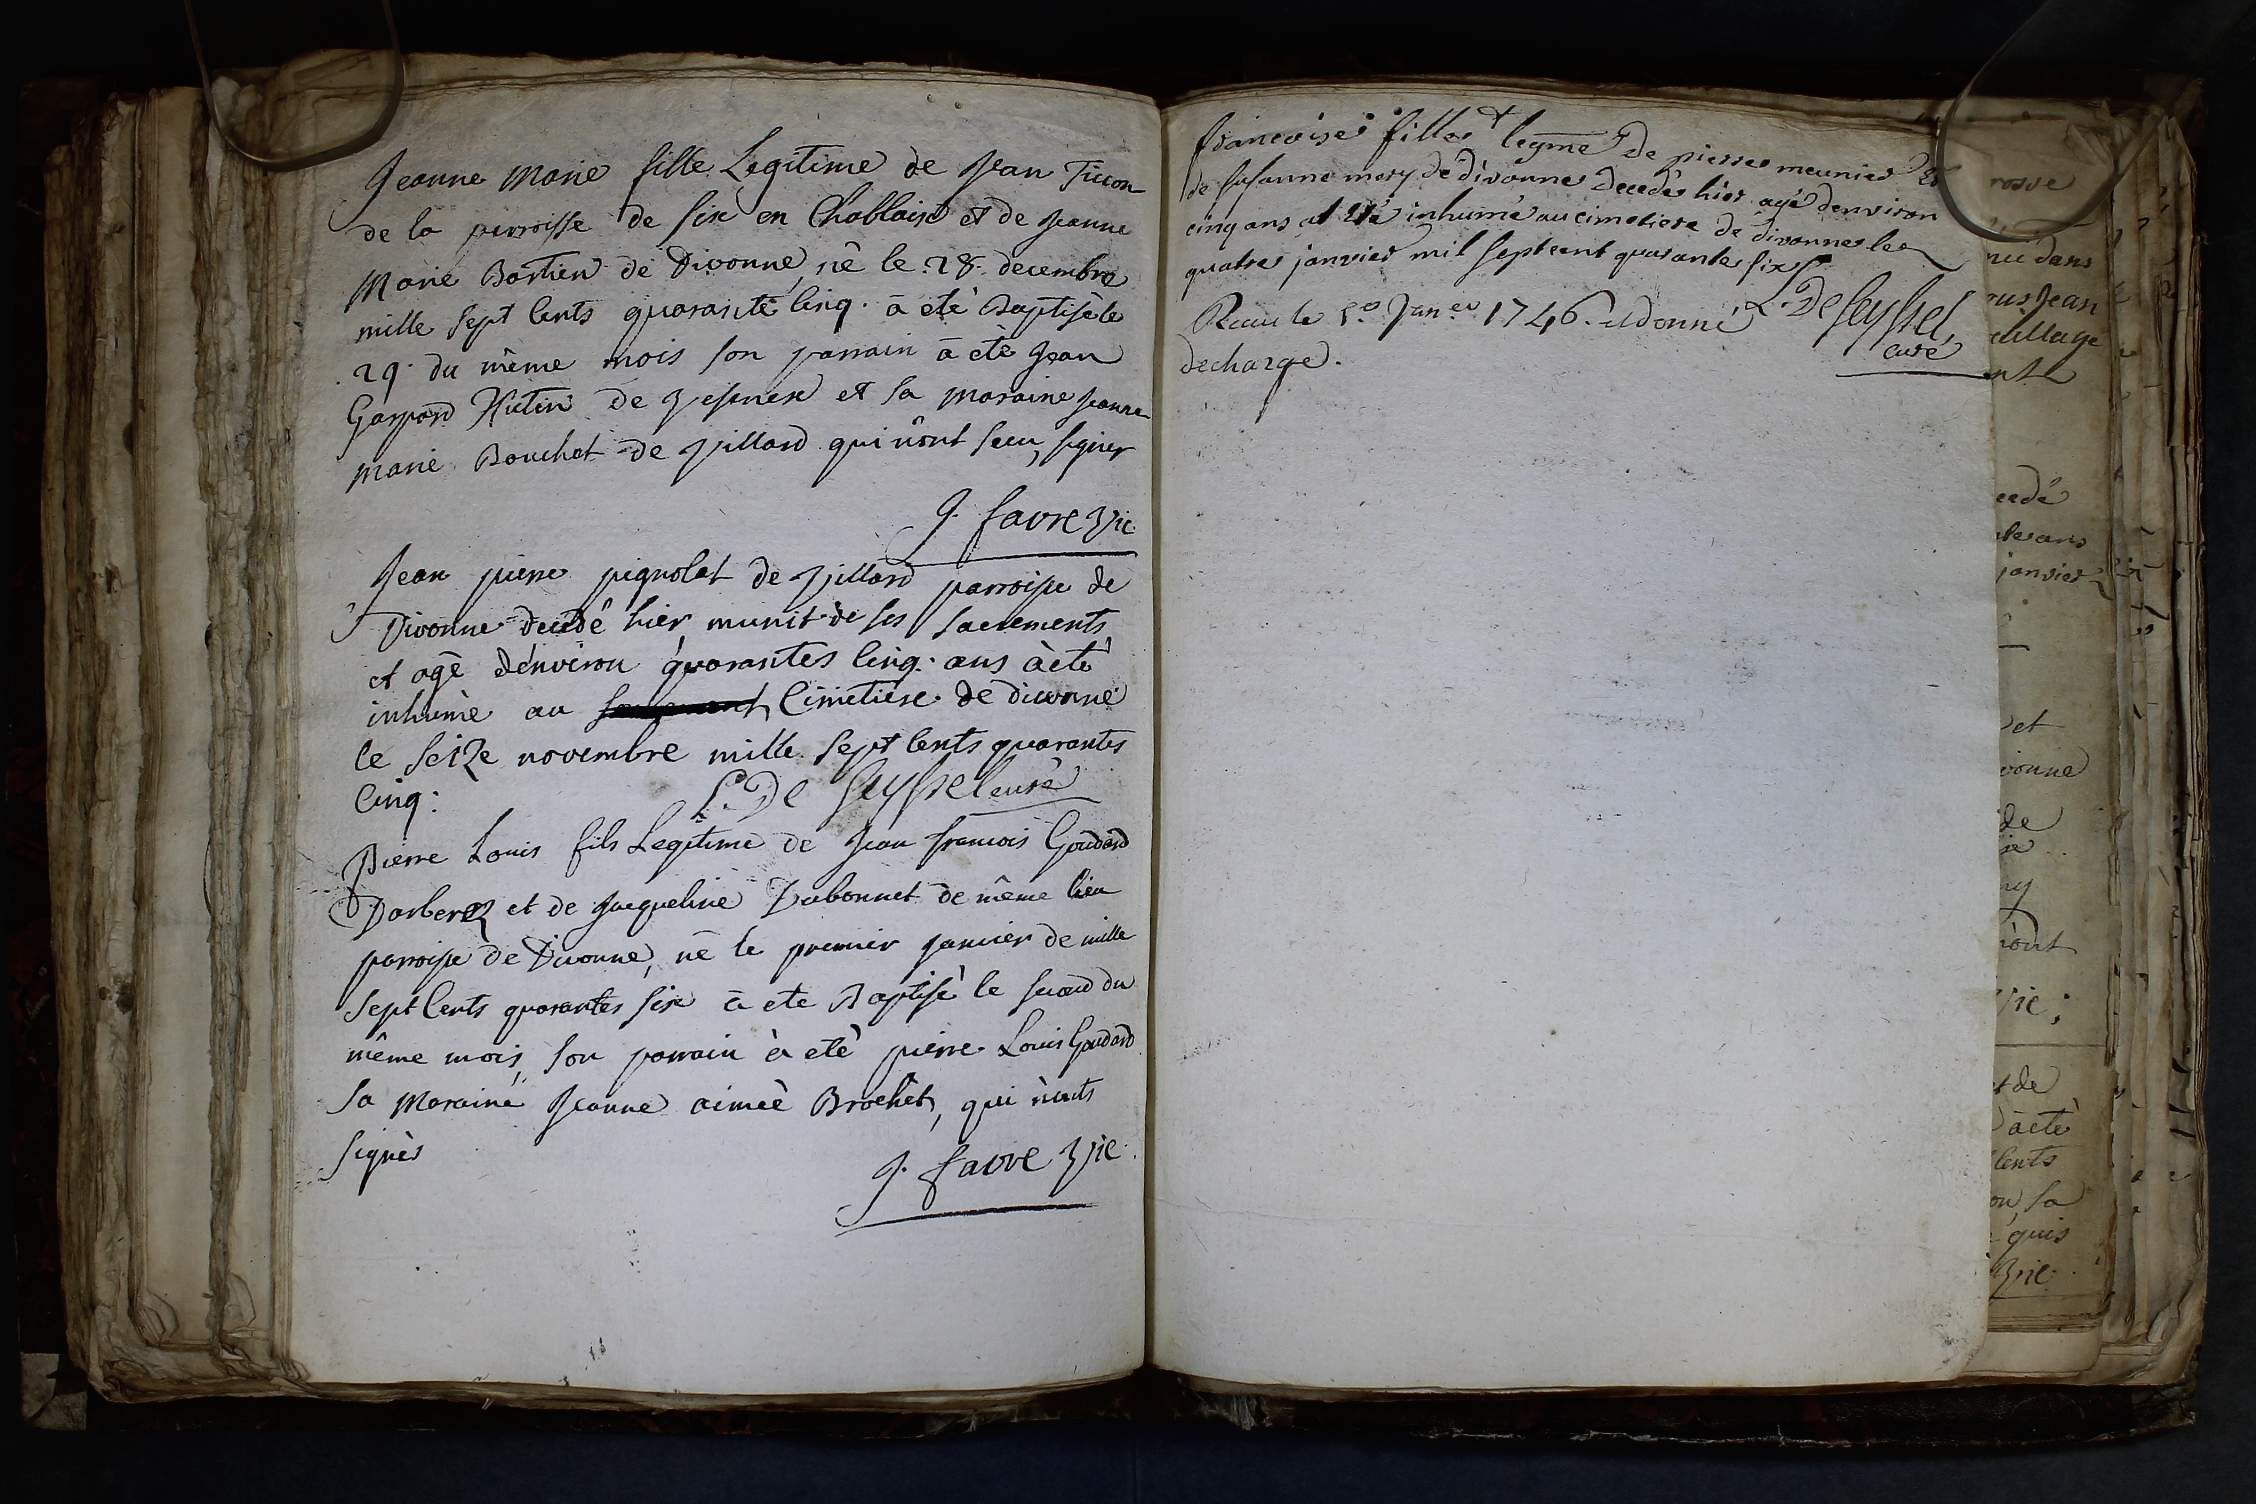 Jeanne Marie fille Legitime de Jean Ticon
de la parroisse de six en Chablaix et de Jeanne
Marie Bastien de Divonne, nê le .28. decembre
mille sept Cents quarante Cinq. à eté Baptisè le
.29. du même mois son parrain à etè Jean
Gaspard Hutin de Vesenex et sa maraine Jeanne
Marie Bouchet de Villard qui n'ont sceu, signer
J. favre Vic
Jean pierre pignolat de Villard parroisse de
Divonne decedê hier, munit de ses sacrements
et agè d'environ quarantes Cinq. ans à etè
inhumè au Cimetiere de divonne
le seize novembre mille sept Cents quarantes
Cinq:
L. De Seyssel curè
Pierre Louis fils Legitime de Jean francois Goudard
Darberez et de Jacqueline Dubonnet de même lieu
parroisse de Divonne, nê le premier Janvier de mille
Sept Cents quarantes six à ete Baptisè le second du
même mois, son parrain à etè pierre Louis Goudard
sa maraine Jeanne aimeè Brochet, qui n'onts
signès
J. favre Vic.
francoise fille legme de pierre meunier et
de susanne mery de divonne decedé hier agé denviron
cinq ans a eté inhumé au cimetiere de divonne le
quatre janvier mil sept cent quarante six
L. De Seyssel,
curé
Receu le Janer 1746. et donné
decharge.
rosve
nu dans
ous Jean
uillage
nt
cedé
janvier
et
vonne
de
n'ont
Vic;
et de
à etè
Cents
on, sa
quis
Vic.